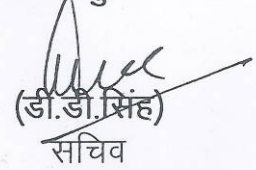 (डी.डी.सिंह)
सचिव